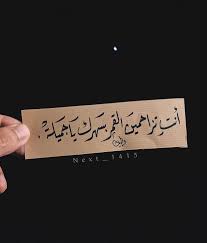 أنتِ تزاحمين القمر بسهرك يا جميلة.
Next_1415